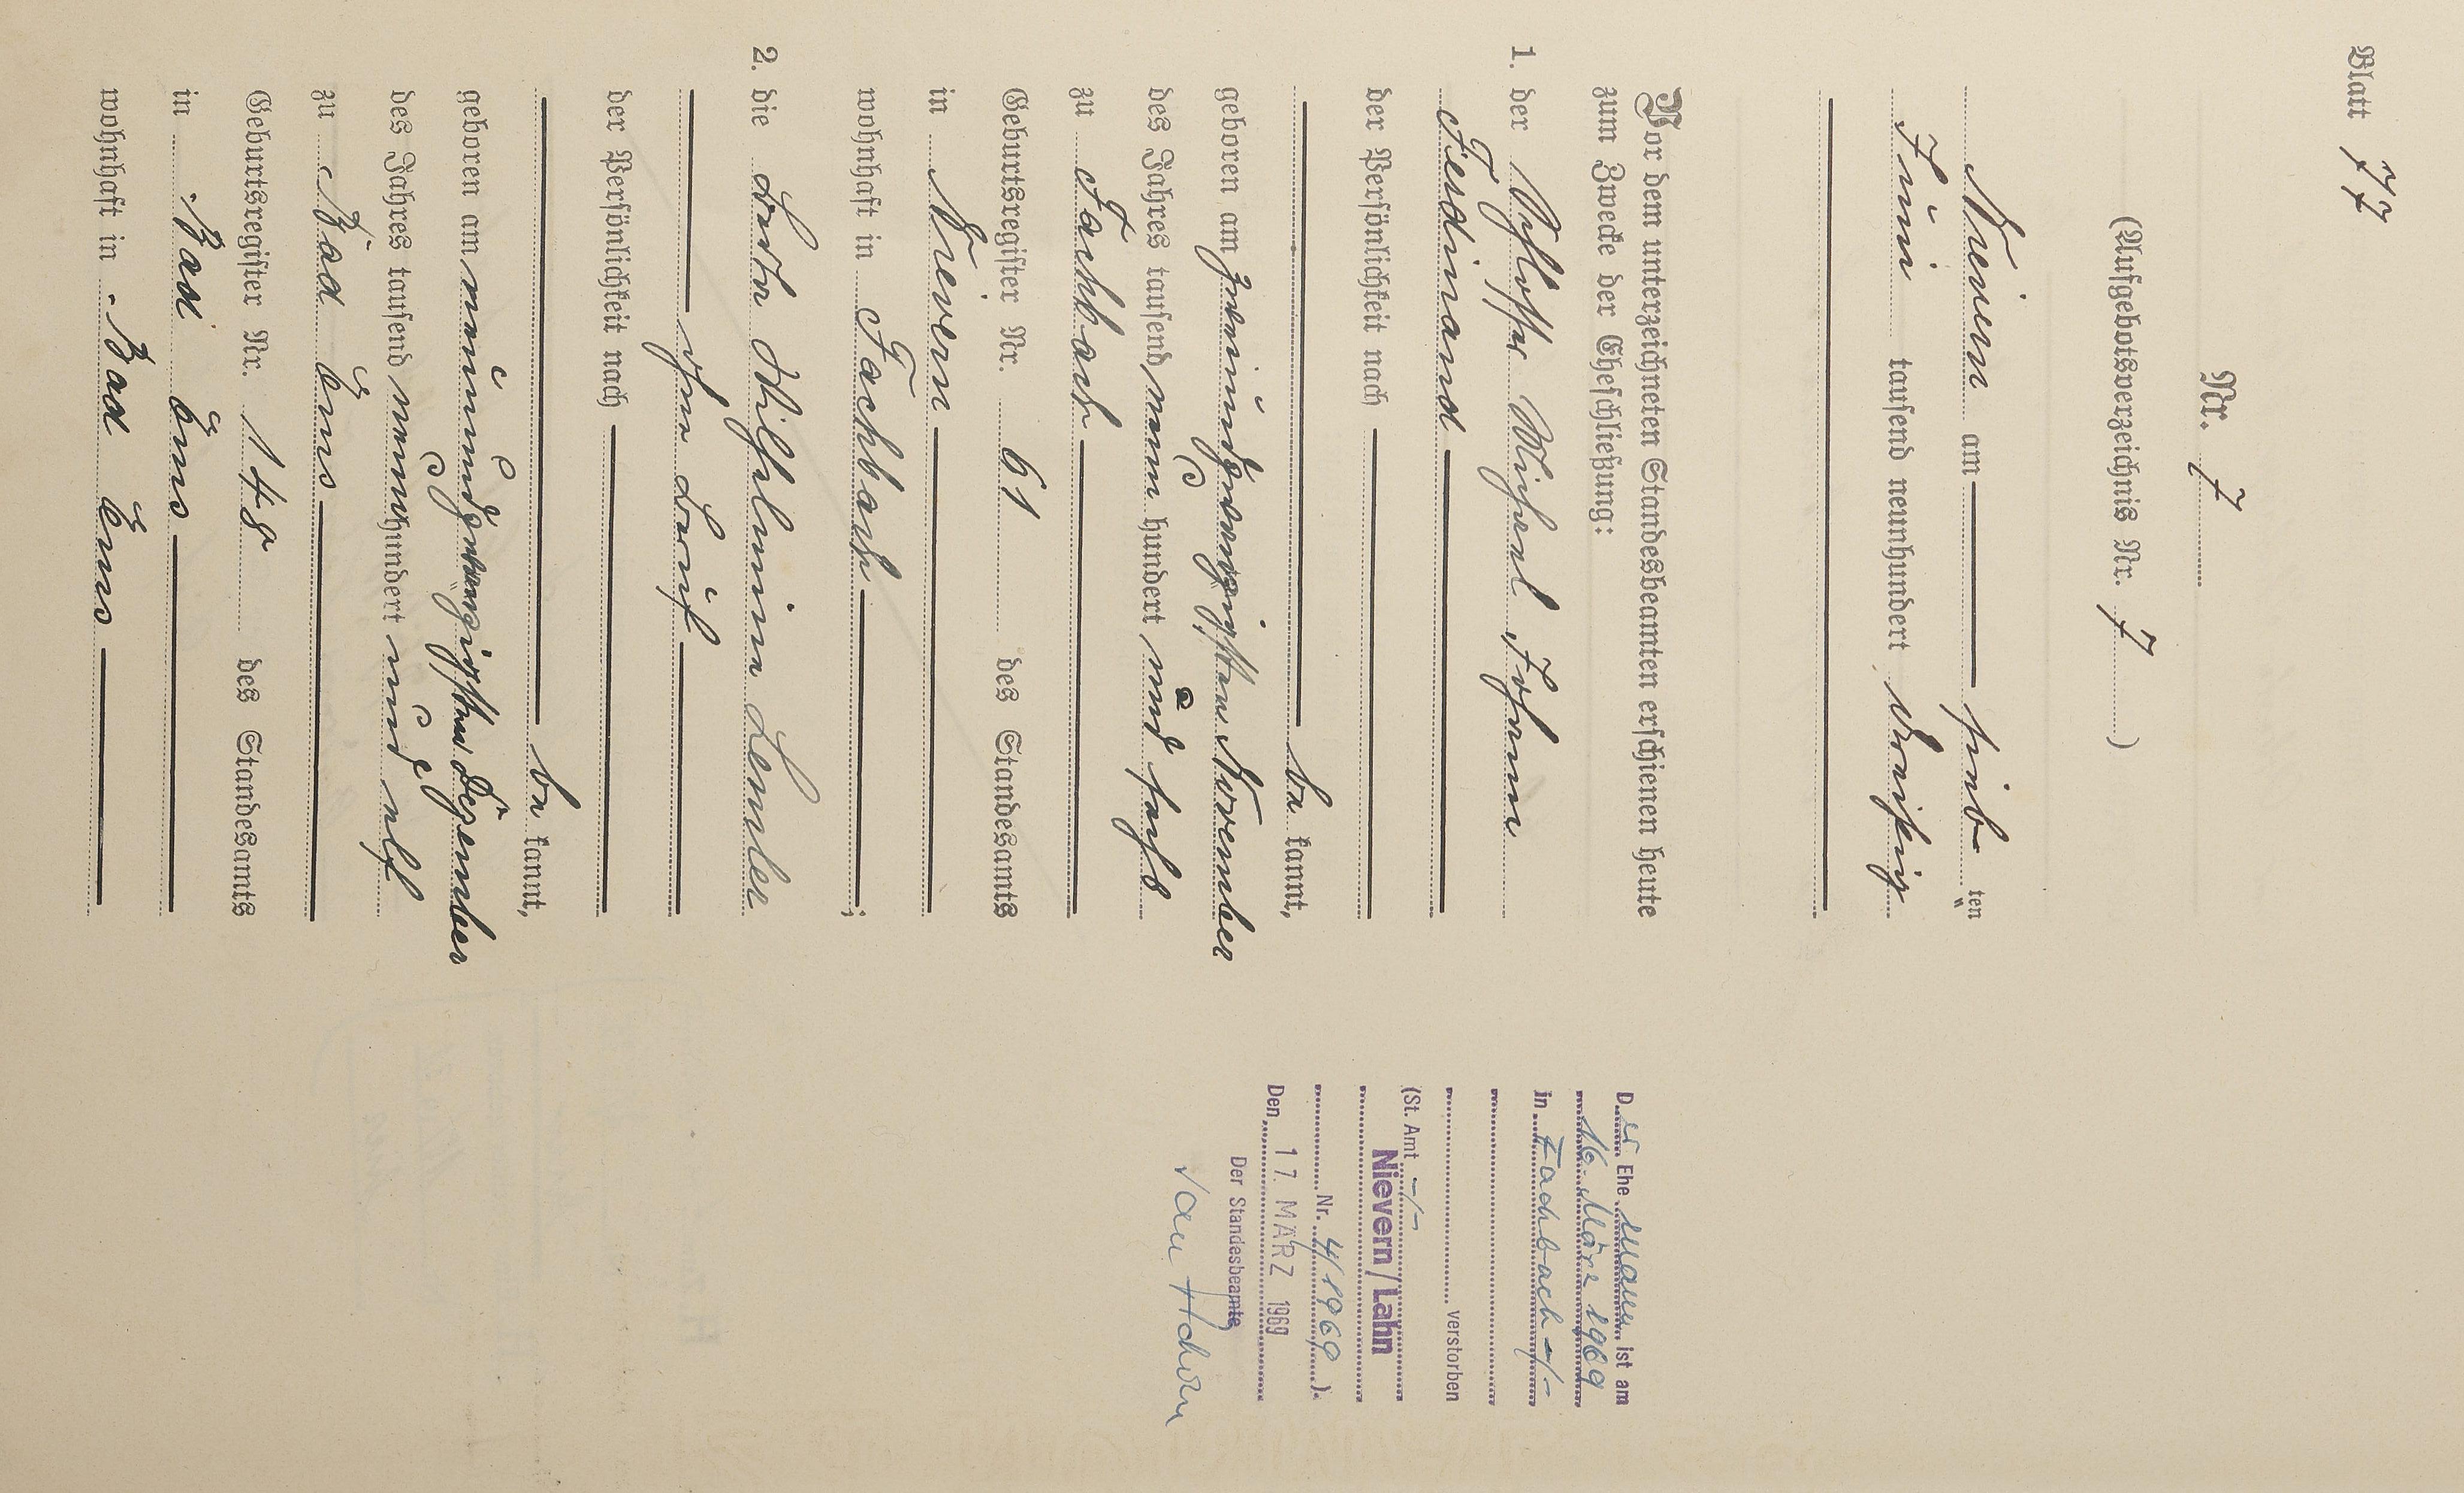 Blatt 77
Nr. 7
(Aufgebotsverzeichnis Nr. 7)
Nievern am sieb ten
Juni tausend neunhundert dreißig
Vor dem unterzeichneten Standesbeamten erschienen heute
zum Zwecke der Eheschließung:
1. der Schlosser Michael Johann
Ferdinand
der Persönlichkeit nach
be kannt,
geboren am zweiundzwanzigsten November
des Jahres tausend neun hundert und sechs
zu Fachbach
Geburtsregister Nr. 61 des Standesamts
in Nievern
wohnhaft in Fachbach ;
2. die Berta Wilhelmine Lemler
ohne Beruf
der Persönlichkeit nach
be kannt,
geboren am neunundzwanzigsten Dezember
des Jahres tausend neunhundert und elf
zu Bad Ems
Geburtsregister Nr. 148 des Standesamts
in Bad Ems
wohnhaft in Bad Ems
Der Ehe Mann ist am
16. März 1969
in Fachbach -/-
verstorben
(St. Amt -/-
Nievern/Lahn
Nr. 4/1969 ).
Den 17. MÄRZ 1969
Der Standesbeamte